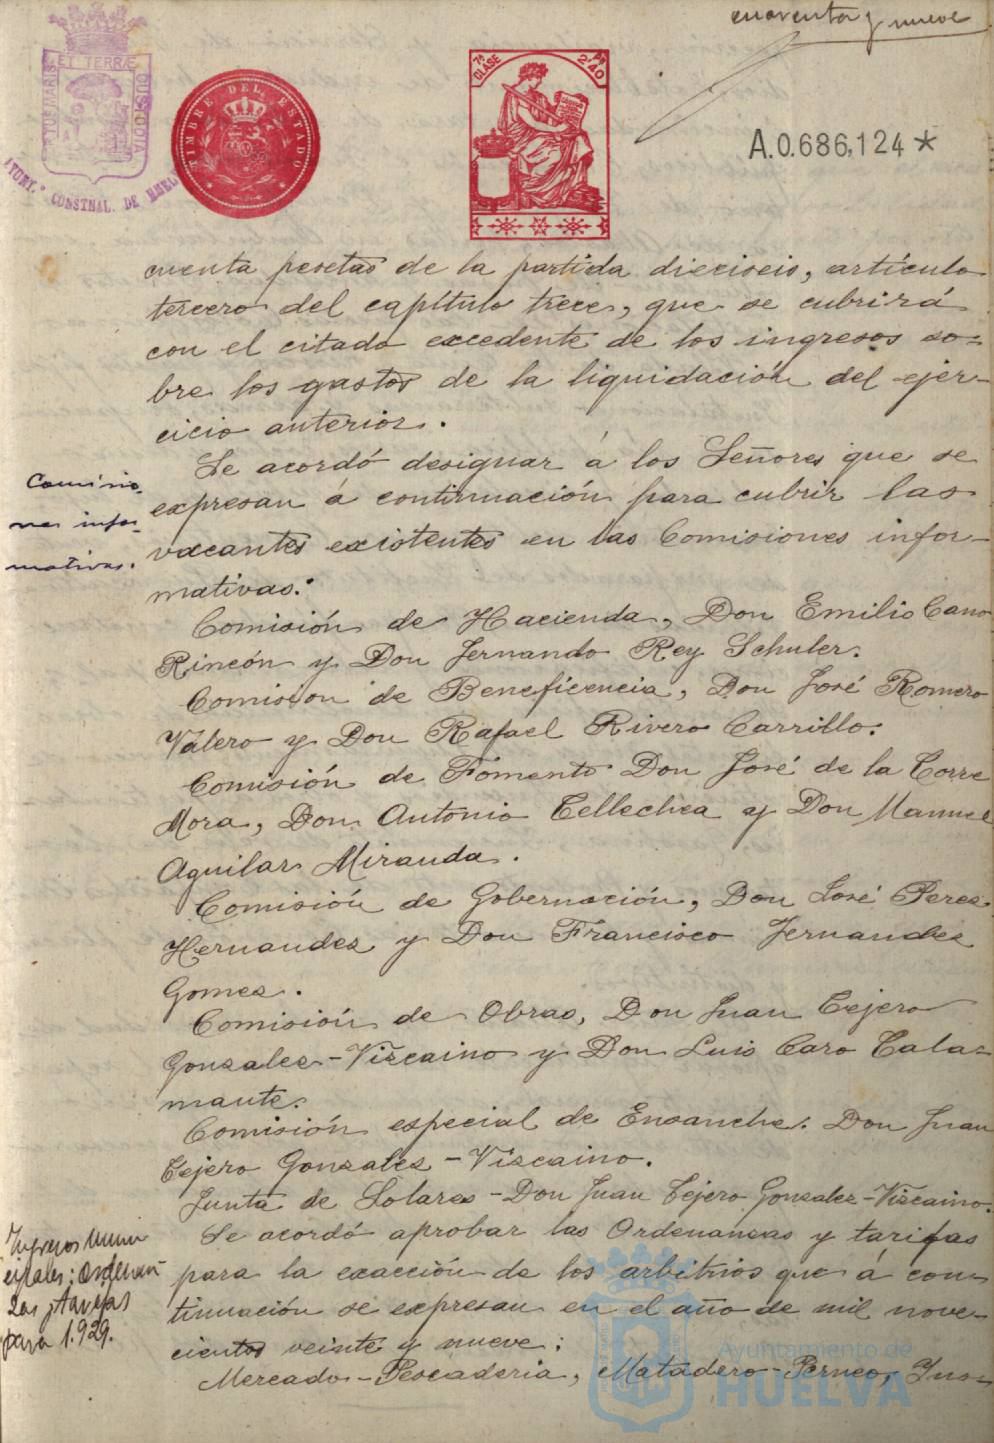 cuarenta y nueve
PORTUS MARIS ET TERRÆ CUSTODIA
AYUNT.º CONSTNAL. DE HUELVA
TIMBRE DEL ESTADO
7ª CLASE
2'40 Pts
A.0.686,124 *
cuenta pesetas de la partida dieciseis, artículo
tercero del capítulo trece, que se cubrirá
con el citado excedente de los ingresos so-
bre los gastos de la liquidación del ejer-
cicio anterior.
Comisio-
nes infor-
mativas.
Se acordó designar á los Señores que se
expresan á continuación para cubrir las
vacantes existentes en las Comisiones infor-
mativas:
Comisión de Hacienda, Don Emilio Cano
Rincón y Don Fernando Rey Schuler.
Comision de Beneficencia, Don José Romero
Valero y Don Rafael Rivero Carrillo.
Comisión de Fomento Don José de la Torre
Mora, Don Antonio Tellechea y Don Manuel
Aguilar Miranda.
Comisión de Gobernación, Don José Perez
Hernandez y Don Francisco Fernandez
Gomez.
Comisión de Obras, Don Juan Tejero
Gonzalez-Vizcaino y Don Luis Caro Tala-
mante.
Comisión especial de Ensanche. Don Juan
Tejero Gonzalez-Vizcaino.
Junta de Solares-Don Juan Tejero Gonzalez-Vizcaino.
Ingresos muni
cipales; ordenan
zas y tarifas
para 1.929.
Se acordó aprobar las Ordenanzas y tarifas
para la exacción de los arbitrios que á con-
tinuación se expresan en el año de mil nove-
cientos veinte y nueve:
Mercado-Pescaderia, Matadero-Perneo, Ins-
Ayuntamiento de
HUELVA